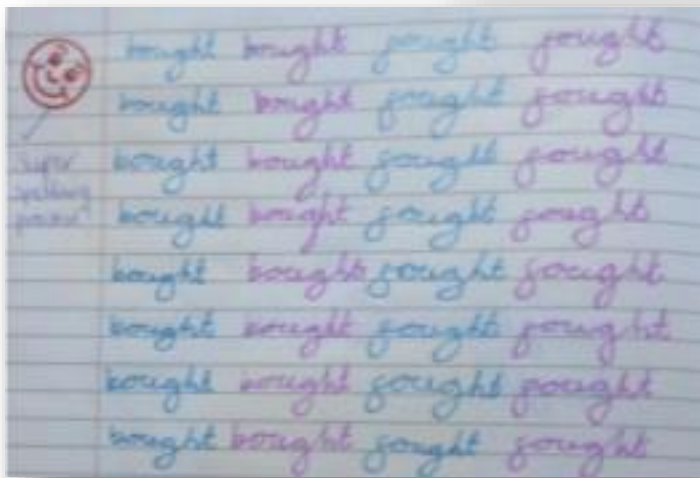 bought bought fought fought
bought bought fought fought
bought bought fought fought
bought bought fought fought
bought bought fought fought
bought bought fought fought
bought bought fought fought
bought bought fought fought
Super
spelling
power